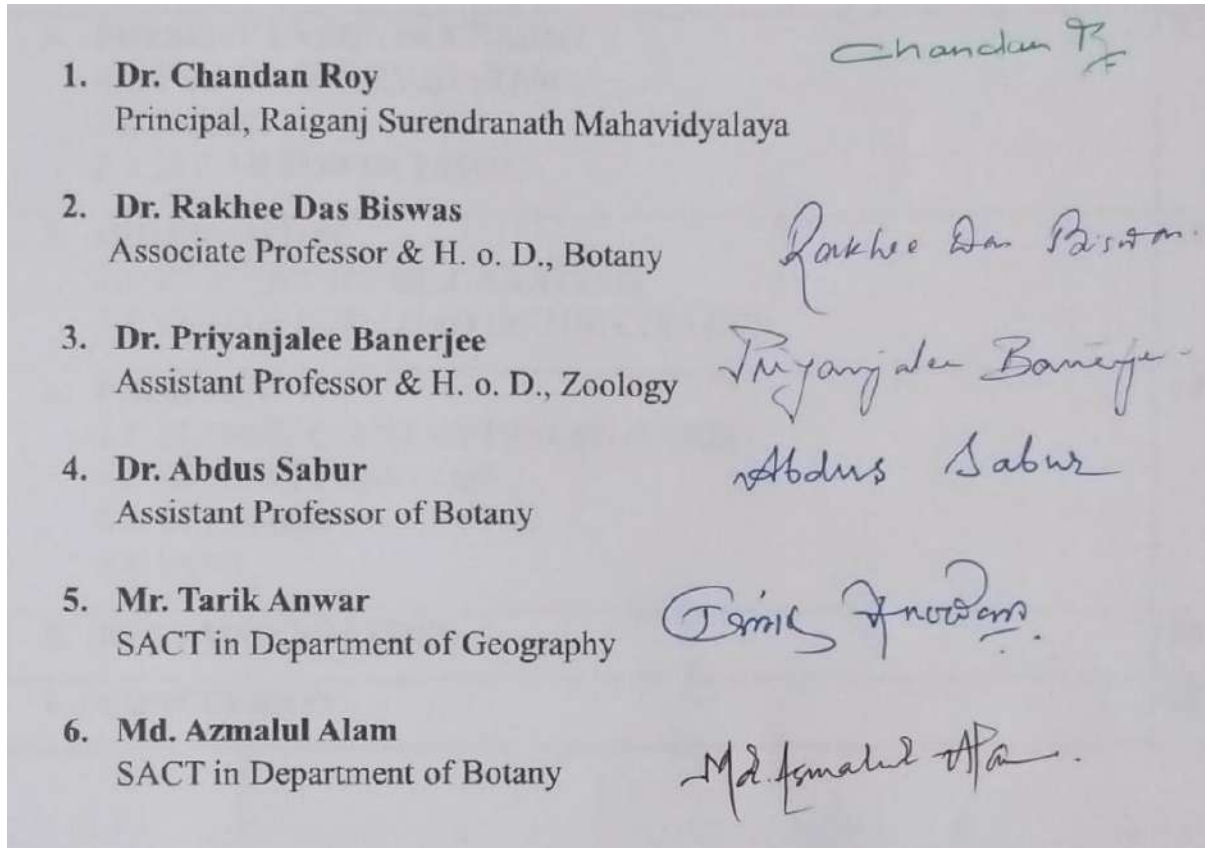 Chandan
1. Dr. Chandan Roy
Principal, Raiganj Surendranath Mahavidyalaya
2. Dr. Rakhee Das Biswas
Associate Professor & H. o. D., Botany
Rakhee Das Biswas
3. Dr. Priyanjalee Banerjee
Assistant Professor & H. o. D., Zoology
Priyanjalee Banerjee
4. Dr. Abdus Sabur
Assistant Professor of Botany
Abdus Sabur
5. Mr. Tarik Anwar
SACT in Department of Geography
6. Md. Azmalul Alam
SACT in Department of Botany
Md. Azmalul Alam